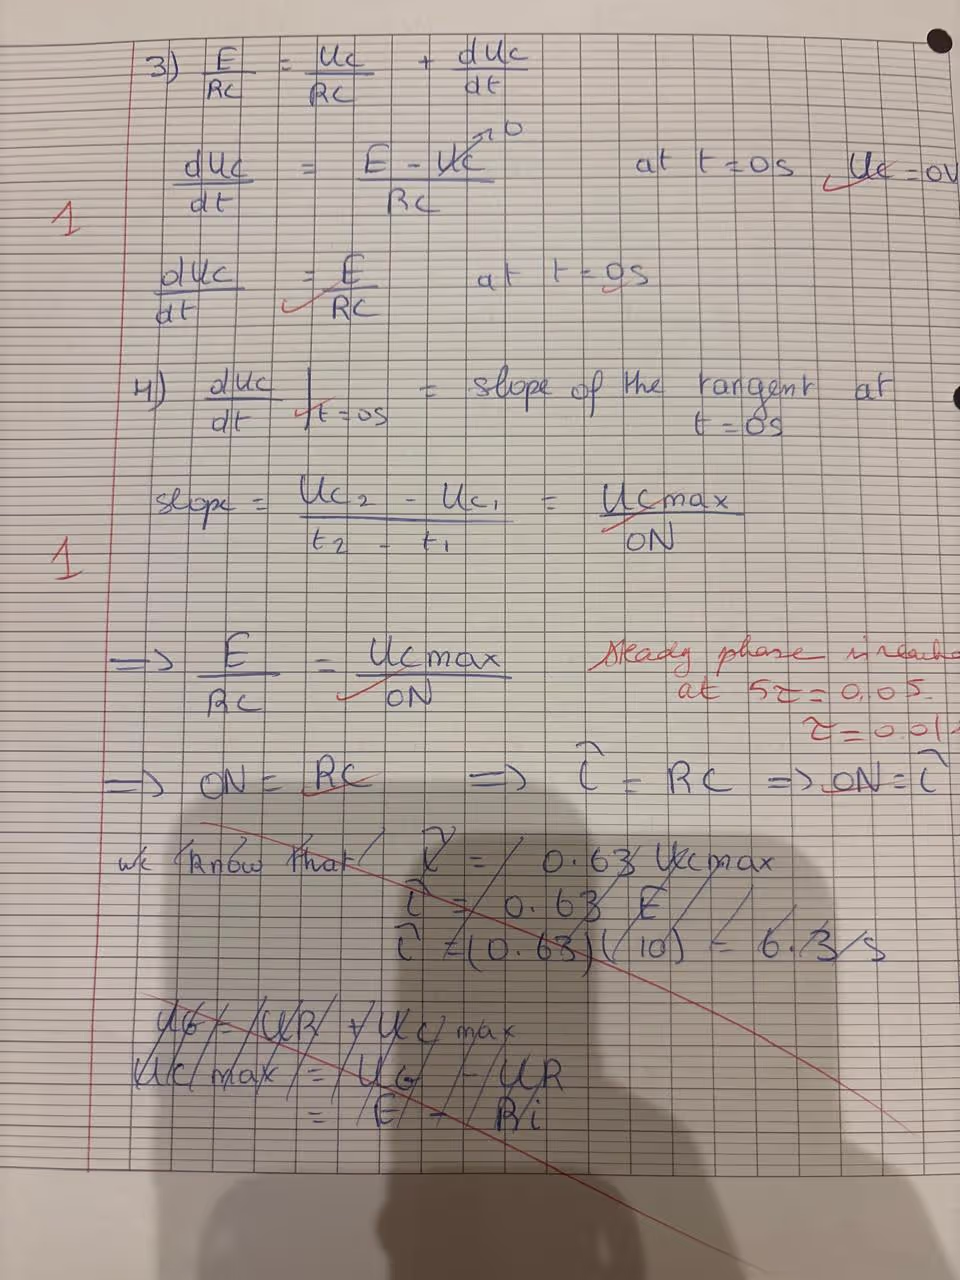 3) E/RC = Uc/RC + dUc/dt
dUc/dt = E - Uc→0 / RC at t = 0s Uc = 0V
1
dUc/dt = E/RC at t = 0s
4) dUc/dt |t=0s = slope of the tangent at t = 0s
slope = Uc2 - Uc1 / t2 - t1 = Ucmax/ON
1
=> E/RC = Ucmax/ON
steady phase is
at 5τ = 0,05
τ = 0.01
=> ON = RC => τ = RC => ON = τ
we know that τ = 0.63 Ucmax
τ = 0.63 E
τ = (0.63)(10) = 6.3 s
UG = UR + Uc max
Uc max = UG - UR
= E - Ri